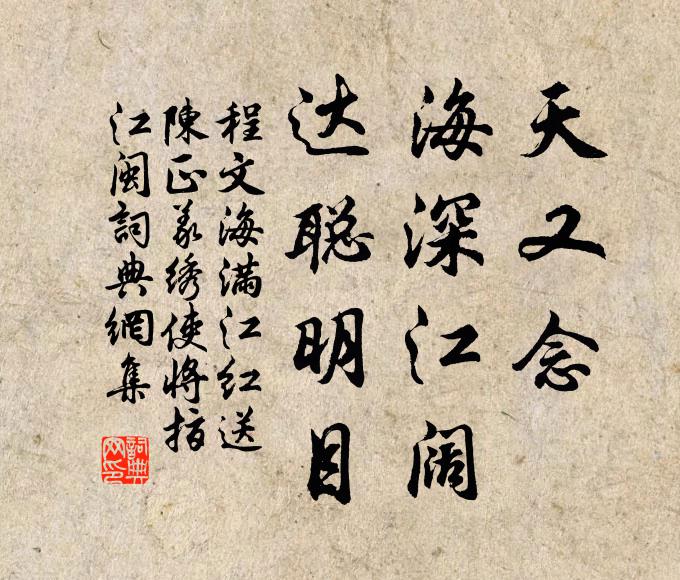 天又念
海深江阔
达聪明目
程文海满江红送
陳正義绣使将指
江闽詞典網集
詞典网印